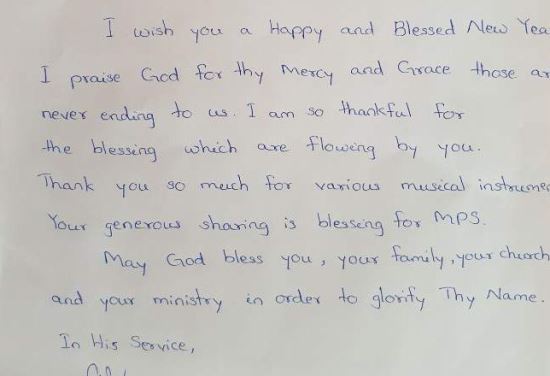 I wish you a Happy and Blessed New Yea
I praise God for thy Mercy and Grace those ar
never ending to us. I am so thankful for
the blessing which are flowing by you.
Thank you so much for various musical instrumen
Your generous sharing is blessing for MPS.
May God bless you, your family, your church
and your ministry in order to glorify Thy Name.
In His Service,